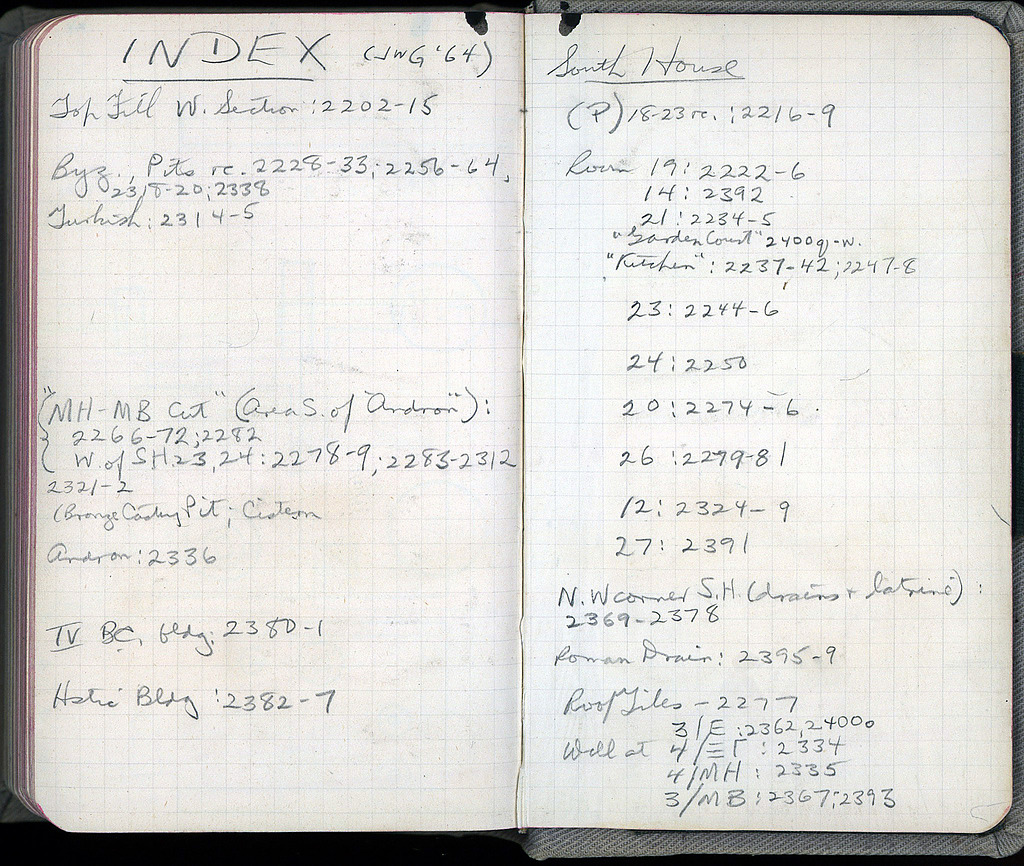 INDEX (JWG '64)
Top Fill W. Section : 2202-15
Byz., Pits re. 2228-33; 2256-64,
2318-20; 2338
Turkish: 2314-5
"MH-MB Cut" (Area S. of "Andron"):
2266-72; 2282
W. of S.H. 23, 24: 2278-9; 2283-2312
2321-2
(Bronze Casting Pit; Cistern
Andron: 2336
IV BC. bldg: 2380-1
Hstic Bldg : 2382-7
South House
(P) 18-23 rc. : 2216-9
Room 19: 2222-6
14: 2392
21: 2234-5
"Garden Court" 2400q-w.
"Kitchen": 2237-42; 2247-8
23: 2244-6
24: 2250
20: 2274-6
26: 2279-81
12: 2324-9
27: 2391
N.W corner S.H. (drains + latrine):
2369-2378
Roman Drain: 2395-9
Roof Tiles - 2277
3/E: 2362, 2400o
Well at 4/ΞΓ : 2334
4/MH : 2335
3/MB : 2367; 2393